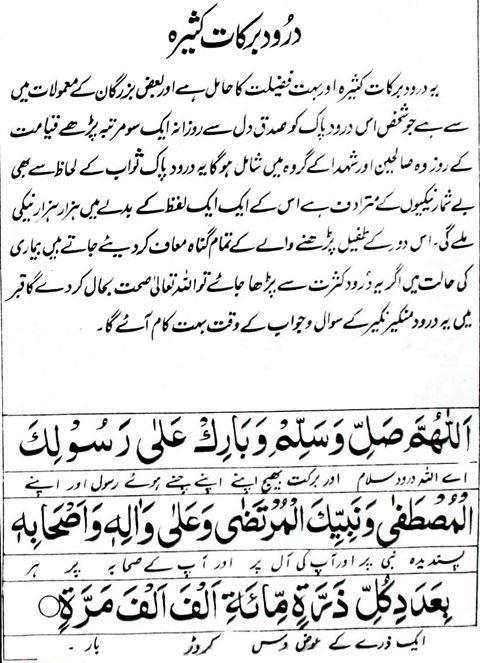 درود برکات کثیرہ
یہ درود برکات کثیرہ اور بہت فضیلت کا حامل ہے اور بعض بزرگان کے معمولات میں
سے ہے جو شخص اس درود پاک کو صدق دل سے روزانہ ایک سو مرتبہ پڑھے قیامت
کے روز وہ صالحین اور شہدا کے گروہ میں شامل ہوگا یہ درود پاک ثواب کے لحاظ سے بھی
بے شمار نیکیوں کے مترادف ہے اس کے ایک ایک لفظ کے بدلے میں ہزار ہزار نیکی
ملے گی۔ اس دور کے طفیل پڑھنے والے کے تمام گناہ معاف کر دیئے جاتے ہیں بیماری
کی حالت میں اگر یہ درود کثرت سے پڑھا جائے تو اللہ تعالیٰ صحت بحال کر دے گا قبر
میں یہ درود منکیر نکیر کے سوال و جواب کے وقت بہت کام آئے گا۔
اَللّٰهُمَّ صَلِّ وَسَلِّمْ وَبَارِكْ عَلٰى رَسُوْلِكَ
اے اللہ درود سلام اور برکت بھیج اپنے اپنے چنے ہوئے رسول اور اپنے
الْمُصْطَفٰى وَنَبِيِّكَ الْمُرْتَضٰى وَعَلٰى وَاٰلِهٖ وَاَصْحَابِهٖ
پسندیدہ نبی پر اور آپ کی آل پر اور آپ کے صحابہ پر ہر
بِعَدَدِ كُلِّ ذَرَّةٍ مِّائَةِ اَلْفَ اَلْفَ مَرَّةٍ
ایک ذرے کے عوض دس کروڑ بار۔